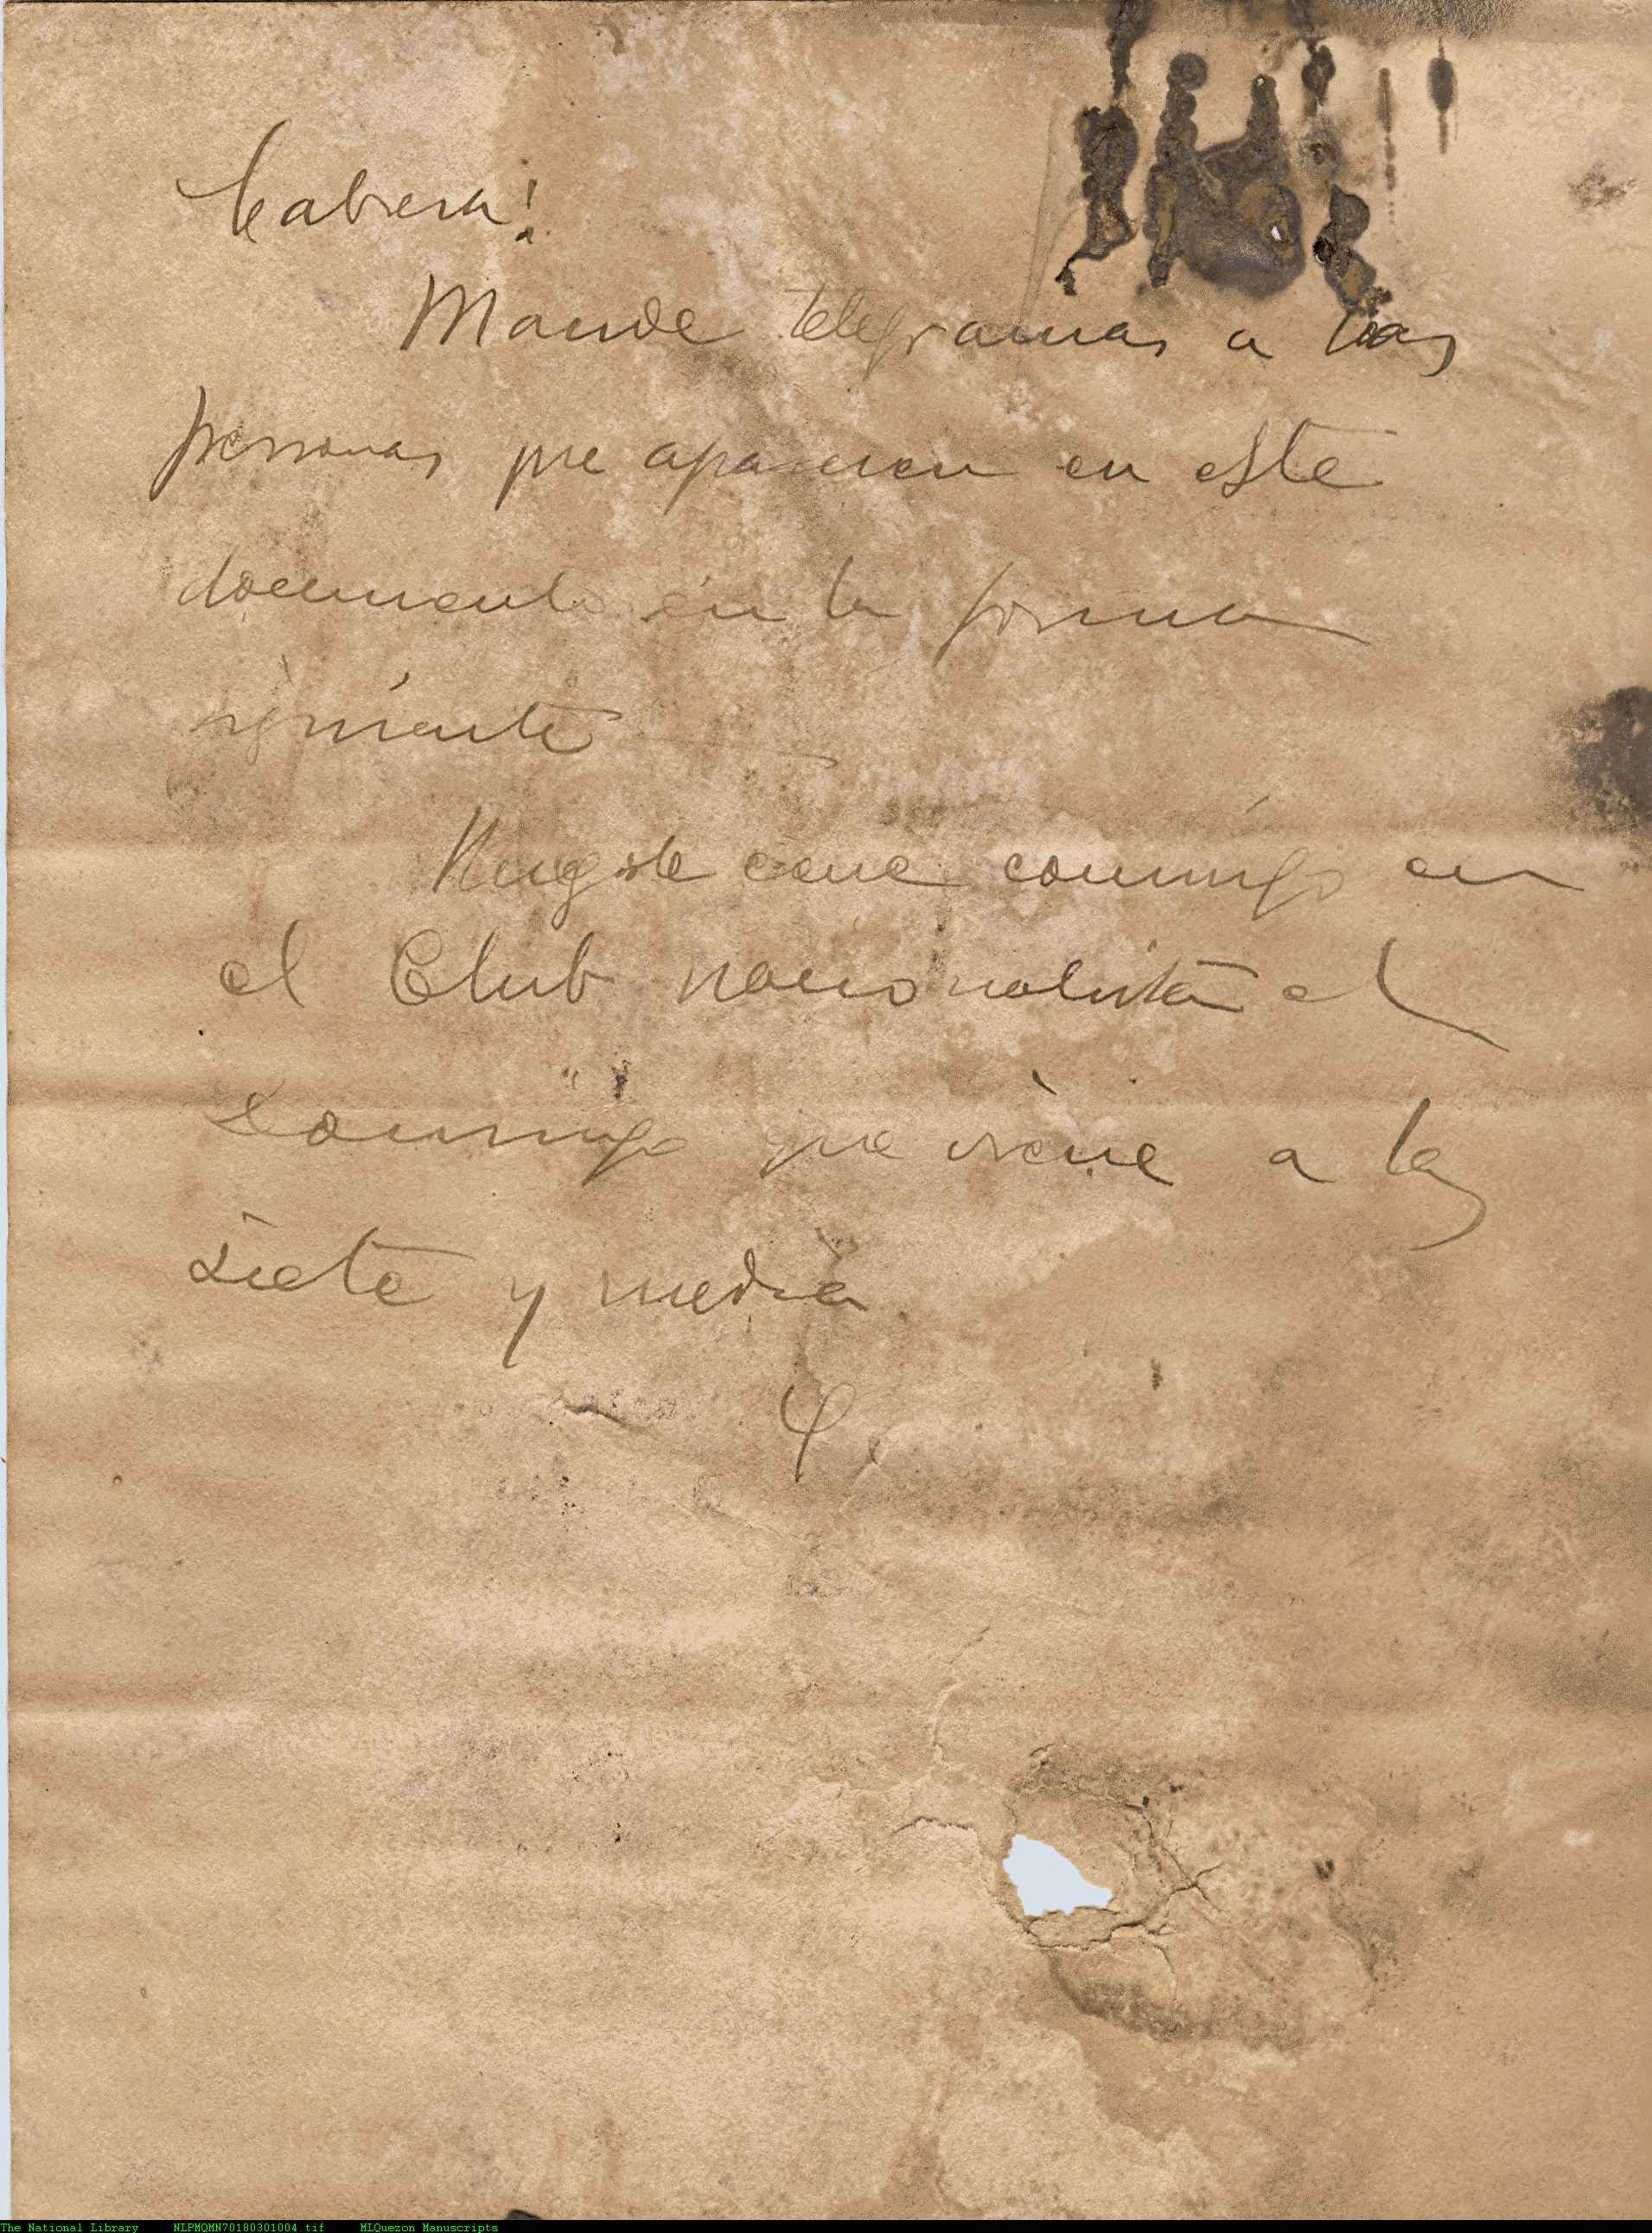 Cabrera!
Mande telegramas a las
personas que aparecen en este
documento en la forma
siguiente
Ruegole cene conmigo en
el Club nacionalista el
Domingo que viene a las
siete y media
Q.
The National Library NLPMQMN70180301004.tif MLQuezon Manuscripts